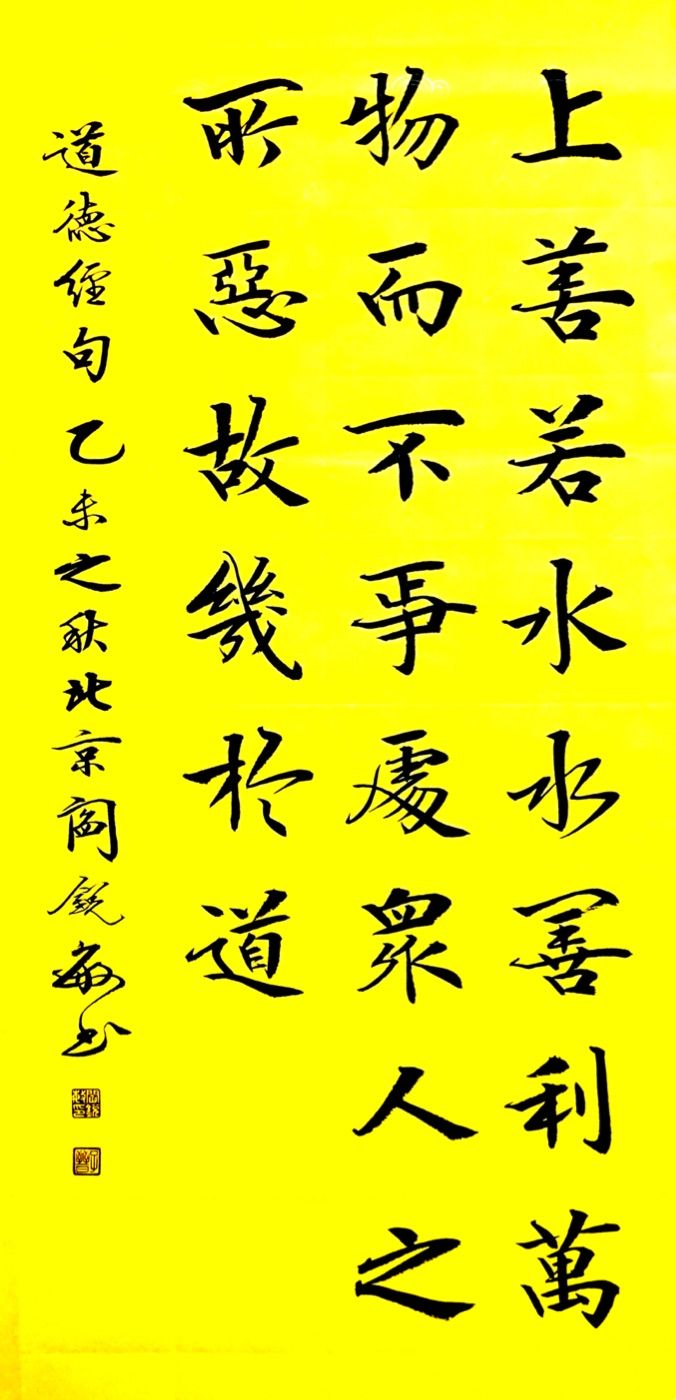 上善若水水善利萬
物而不爭處衆人之
所惡故幾於道
道德經句乙未之秋北京閻銳敏书